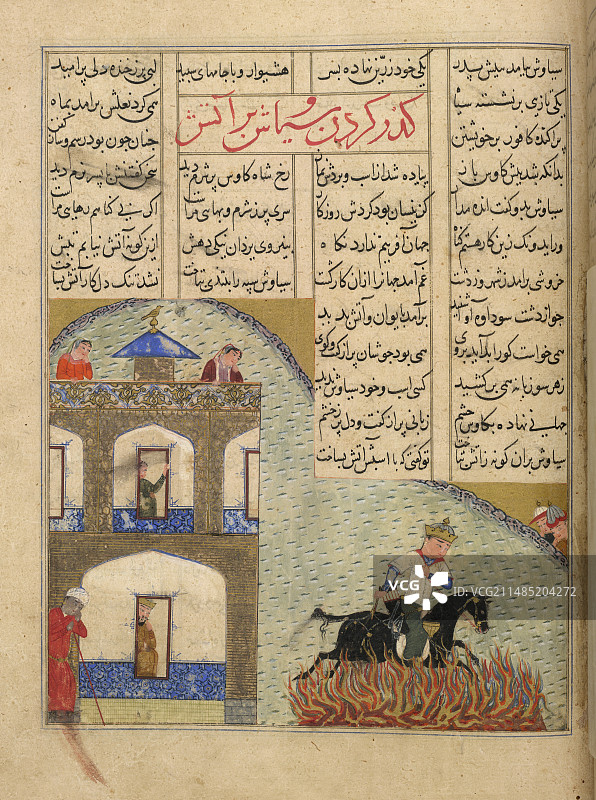 سیاوش بیامد بپیش پدر یکی خود زرین نهاده بسر هشیوار و با جامهای سپید لبی پر ز خنده دلی پر امید
یکی بازی برنشسته سیاه همی گرد نعلش برآمد بماه
پراکنده کافور بر خویشتن چنان چون بود رسم و ساز کفن
گذر کردن سیاوش بر آتش
بدانکه شد پیش کاوس باز پیاده شد از اب و بردش نماز رخ شاه کاوس پر شرم دید سخن گفتنش با پسر نرم دید
سیاوش بدو گفت انده مدار کزینسان بود گردش روزگار سری پر ز شرم و بهای مراست اگر بی گناهم رهای مراست
ور ایدونک زین کار هستم گناه جهان آفرینم ندارد نگاه بنیروی یزدان نیکی دهش ازین کوه آتش نیابم تبش
خروشی برآمد ز شهر و ز دشت غم آمد جهانرا ازان کار گشت سیاوش سیه را بتندی بتاخت نشد تنک دل کار آتش بساخت
چو از دشت سوداوه آوا شنید برآمد بایوان و آتش بدید
همی خواست کورا بد آید بروی همی بود جوشان پر از گفت و گوی
ز هر سو زبانه همی برکشید کسی اسب و خود سیاوش ندید
جهانی نهاده بکاوس چشم زبانی پر از گفت و دل پر ز خشم
سیاوش بران کوه آتش بتاخت تو گفتی که با اسپش آتش بساخت
VCG
VCG.COM
ID: VCG211485204272